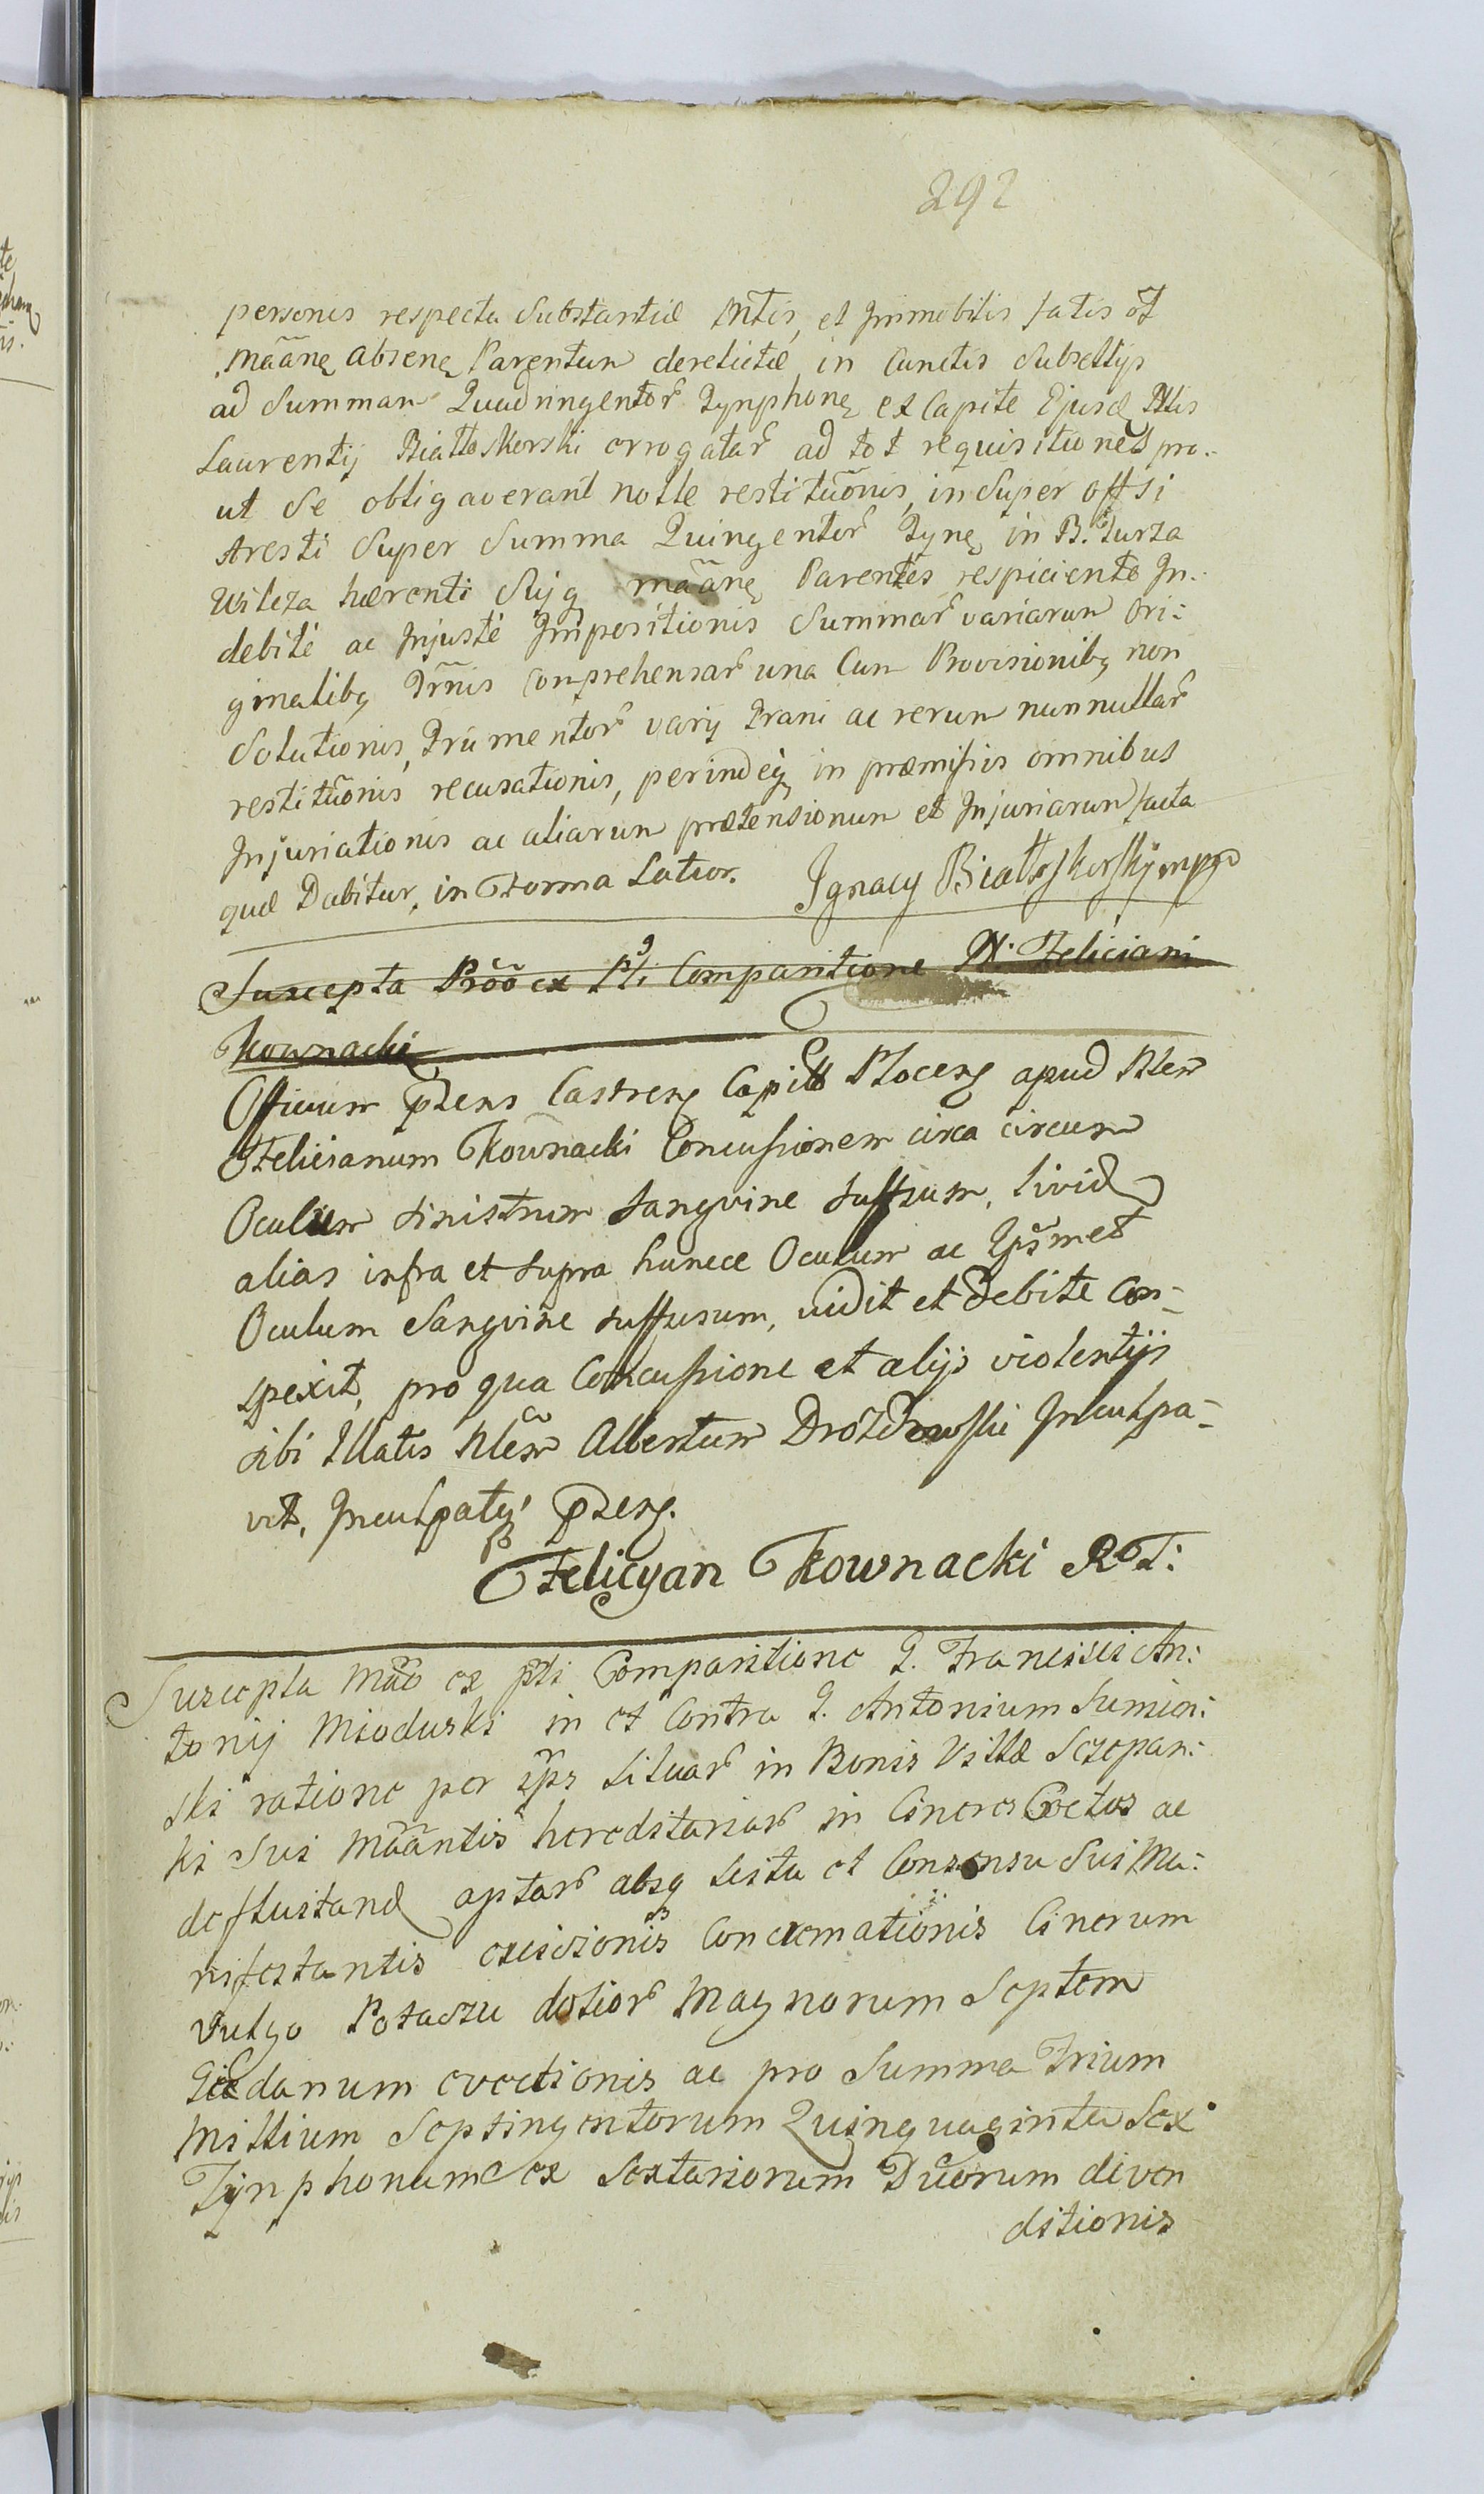 292
personis respectu Substantiæ Mtis, et Immobilis fatis ót
Mããne absene Parentum derelictæ, in Cunctis Subsellijs
ad Summam Quadringentor Tynphone ex Capite Ejusd
Laurentij Białłoskorski errogatar ad tot requisitiones pro-
ut Se obligaverant nolle restitũonis, in Super
Aresti Super Summa Quingentor Tyne in B. Turza
Wilcza hærenti mããne Parentes respiciente In-
debité ac Injusté Impositionis Summar variarum Ori:
ginalibq Comprehensar una Cum Provisionibq non
Solutionis, Frumentor varij Grani ac rerum nunnullar
restitũonis recusationis, perindeq in præmissis omnibus
Injuriationis ac aliarum prætensionum et Injuriarum facta
quæ Dabitur, in Forma Latior. Ignacy Białłoskorsky mpp
Suscepta ex Comparitione Feliciani
Kownacki
Officium pñens Castrens Capitt Plocens apud
Felicianum Kownacki Concussionem circa circum
Oculum sinistrum sangvine suffusum, livid
alias infra et supra huncce Oculum ac Ipsmet
Oculum Sangvine suffusum, vidit et debite con-
spexit, pro qua Concussione et alijs violentijs
sibi Illatis Albertum Drozdowski Inculpa-
vit, Inculpatq pñens.
Felicyan Kownacki RT:
Suscepta Mãõ ex Comparitione G. Francisci An:
tonij Mioduski in et Contra G. Antonium Sumin:
ski ratione per ips Siluar in Bonis Villæ Szczepan:
ki Sui Mããntis hereditariar in Cineres Coctus ac
deflustand aptar absq scitu et Consensu Sui Ma:
nifestantis excisionis Concremationis Cinerum
vulgo Potaszu dolior Magnorum Septem
Gedanum evectionis ac pro Summa Trium
Millium Septingentorum Quinquaginta Sex
Tynphonum ex Sextariorum Duorum diven
ditionis